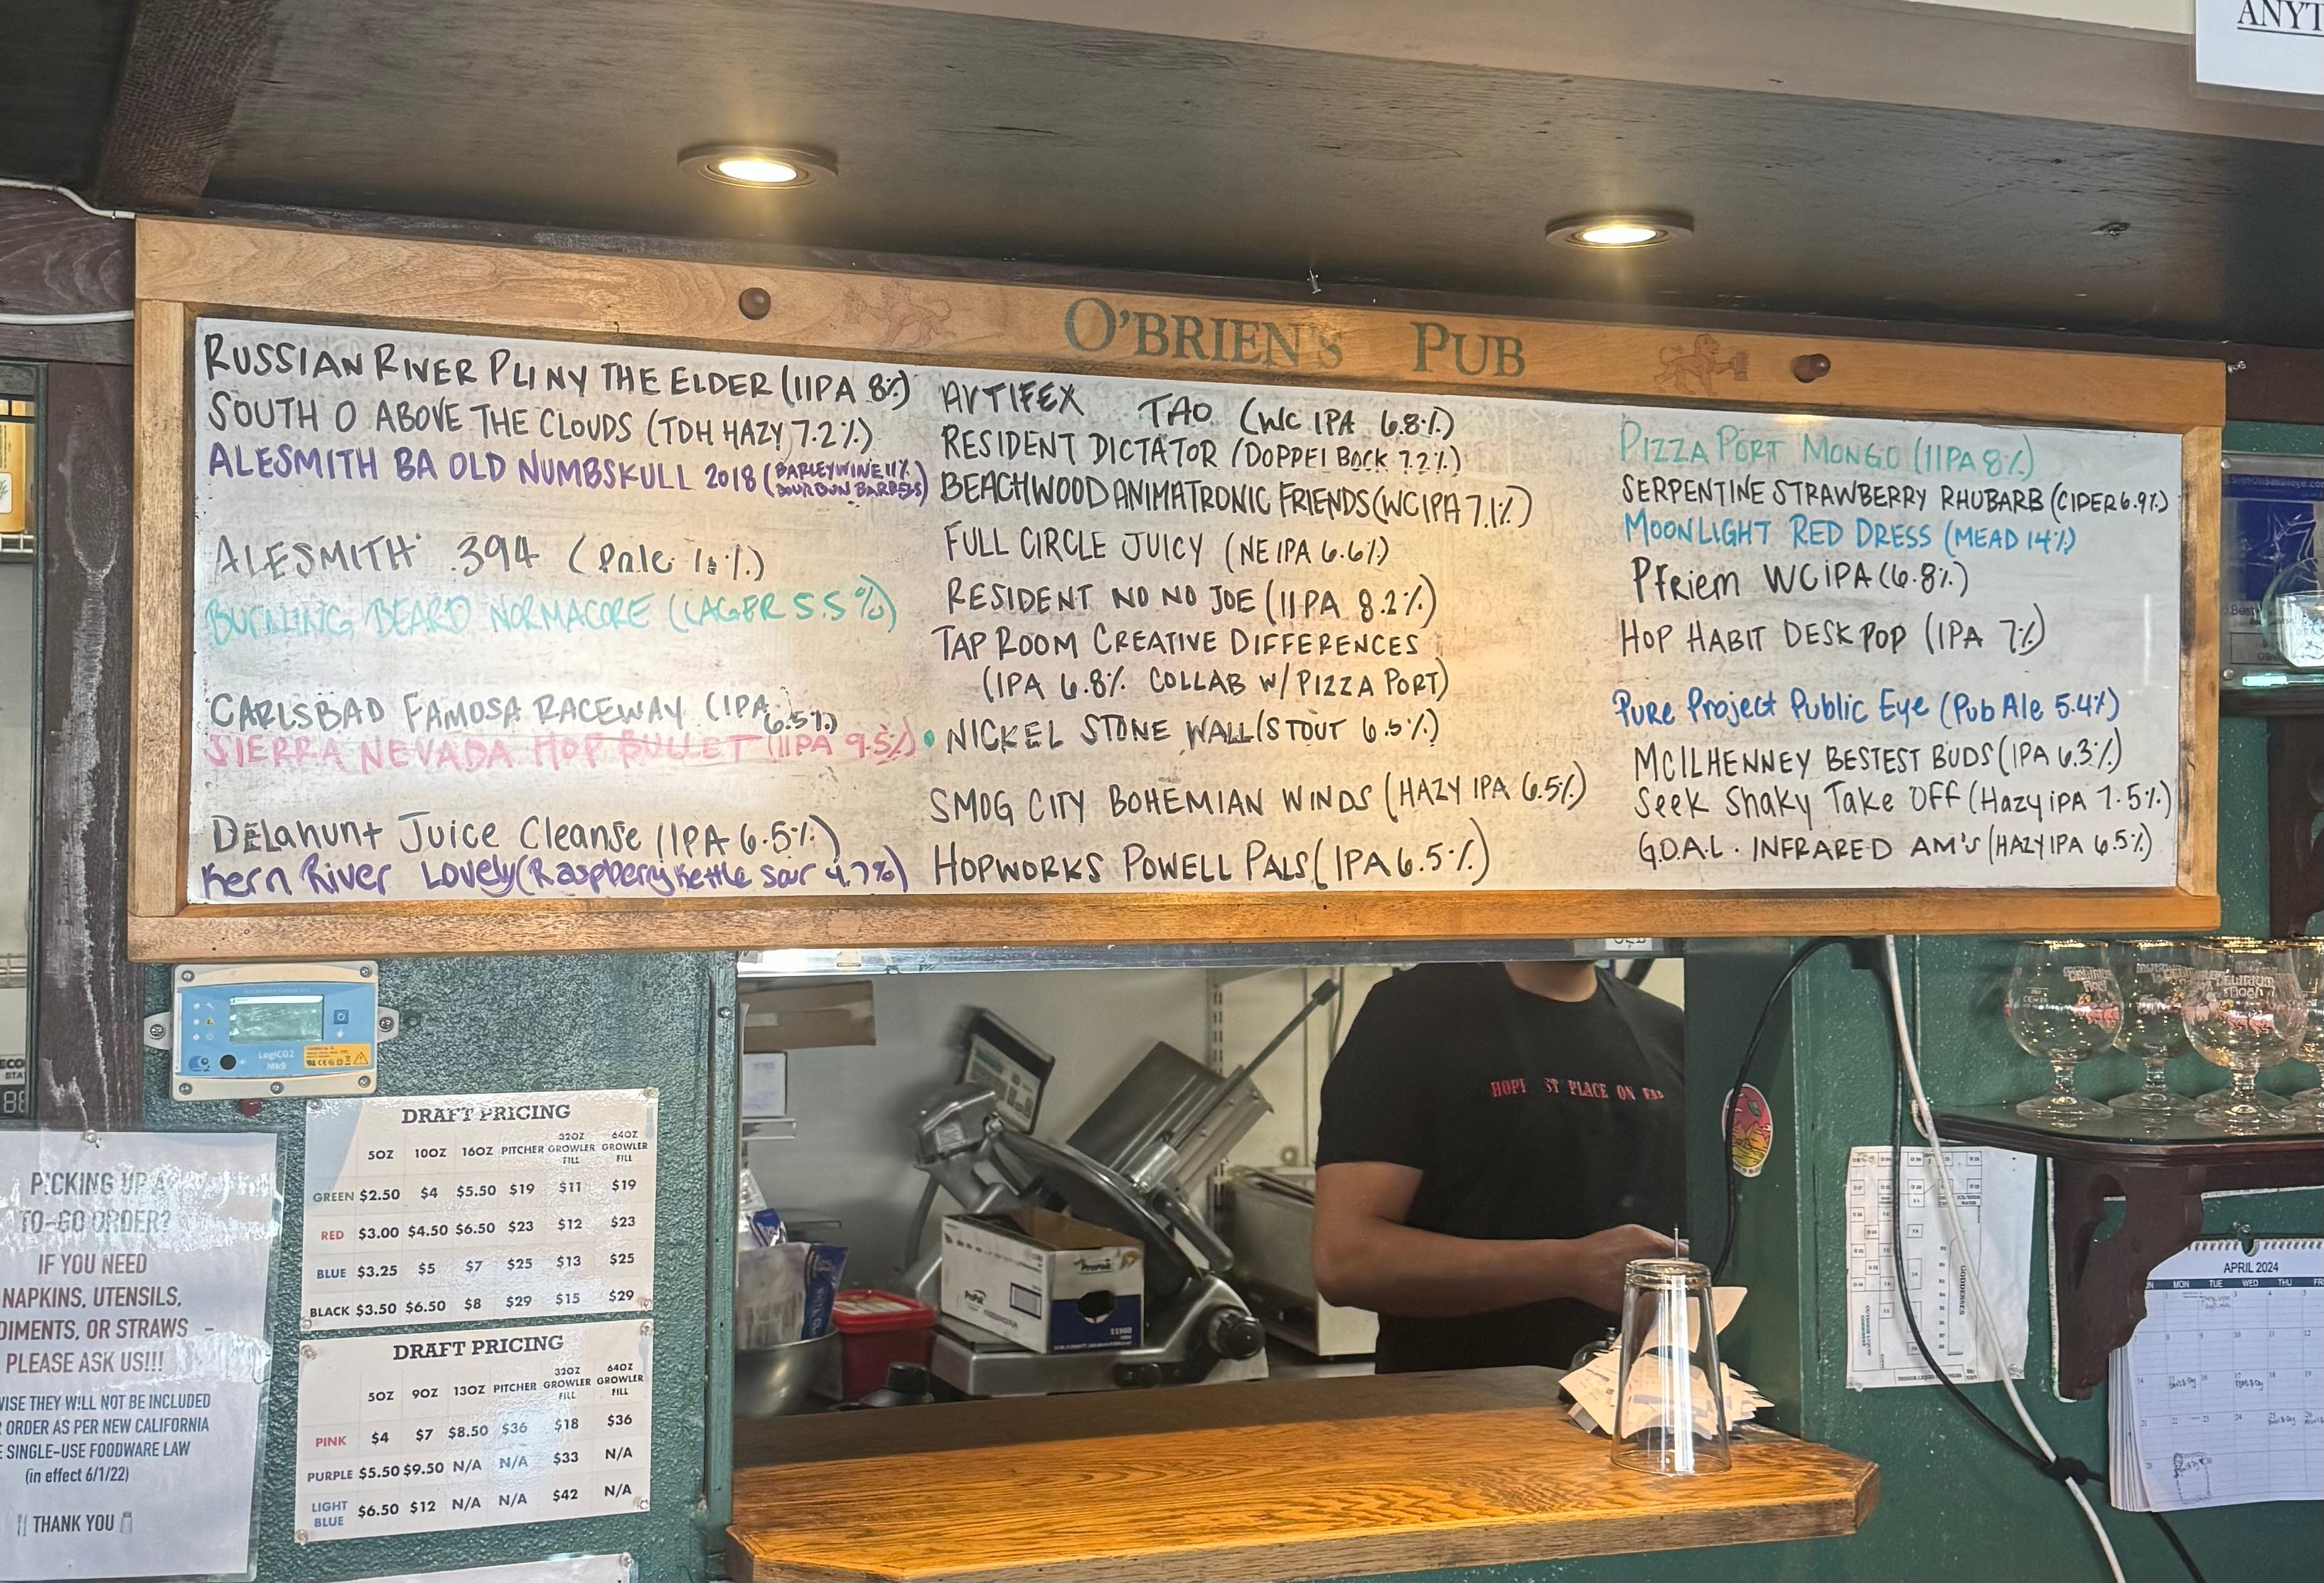 ANYT
O'BRIEN'S PUB
RUSSIAN RIVER PLINY THE ELDER (IIPA 8%)
SOUTH O ABOVE THE CLOUDS (TDH HAZY 7.2%)
ALESMITH BA OLD NUMBSKULL 2018 (BARLEYWINE 11%
BOURBON BARRELS)
ALESMITH .394 (Pale %)
BURNING BEARD NORMACORE (LAGER 5.5%)
CARLSBAD FAMOSA RACEWAY (IPA
6.5%)
SIERRA NEVADA HOP BULLET (IIPA 9.5%)
DELahunt Juice Cleanse (IPA 6.5%)
Kern River Lovely (Raspberry Kettle Sour 4.7%)
ARTIFEX TAO (WC IPA 6.8%)
RESIDENT DICTATOR (DOPPELBOCK 7.2%)
BEACHWOOD ANIMATRONIC FRIENDS (WC IPA 7.1%)
FULL CIRCLE JUICY (NE IPA 6.6%)
RESIDENT NO NO JOE (IIPA 8.2%)
TAP ROOM CREATIVE DIFFERENCES
(IPA 6.8% COLLAB W/ PIZZA PORT)
• NICKEL STONE WALL (STOUT 6.5%)
SMOG CITY BOHEMIAN WINDS (HAZY IPA 6.5%)
HOPWORKS POWELL PALS (IPA 6.5%)
PIZZA PORT MONGO (IIPA 8%)
SERPENTINE STRAWBERRY RHUBARB (CIDER 6.9%)
MOONLIGHT RED DRESS (MEAD 14%)
Pfriem WC IPA (6.8%)
HOP HABIT DESK POP (IPA 7%)
Pure Project Public Eye (Pub Ale 5.4%)
MCILHENNEY BESTEST BUDS (IPA 6.3%)
Seek Shaky Take Off (Hazy IPA 7.5%)
G.O.A.L. INFRARED AM'S (HAZY IPA 6.5%)
LogiCO2
Mk9
DRAFT PRICING
5OZ 10OZ 16OZ PITCHER 32OZ GROWLER FILL 64OZ GROWLER FILL
GREEN $2.50 $4 $5.50 $19 $11 $19
RED $3.00 $4.50 $6.50 $23 $12 $23
BLUE $3.25 $5 $7 $25 $13 $25
BLACK $3.50 $6.50 $8 $29 $15 $29
DRAFT PRICING
5OZ 9OZ 13OZ PITCHER 32OZ GROWLER FILL 64OZ GROWLER FILL
PINK $4 $7 $8.50 $36 $18 $36
PURPLE $5.50 $9.50 N/A N/A $33 N/A
LIGHT BLUE $6.50 $12 N/A N/A $42 N/A
PICKING UP A
TO-GO ORDER?
IF YOU NEED
NAPKINS, UTENSILS,
DIMENTS, OR STRAWS –
PLEASE ASK US!!!
WISE THEY WILL NOT BE INCLUDED
ORDER AS PER NEW CALIFORNIA
SINGLE-USE FOODWARE LAW
(in effect 6/1/22)
THANK YOU
PLACE ON
APRIL 2024
MON TUE WED THU